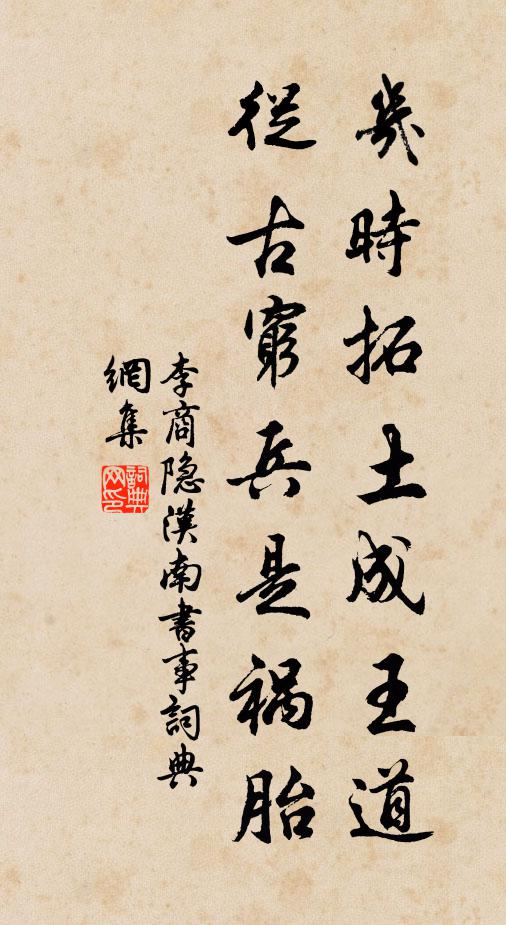 幾時拓土成王道
從古窮兵是禍胎
李商隐漢南書事詞典
網集
詞典網印